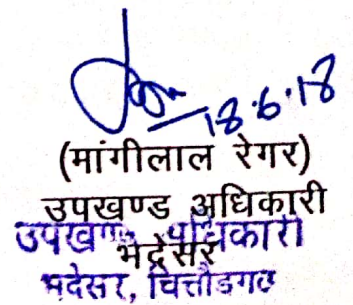 18.6.18
(मांगीलाल रेगर)
उपखण्ड अधिकारी
भदेसर
उपखण्ड अधिकारी
भदेसर, चित्तौडगढ